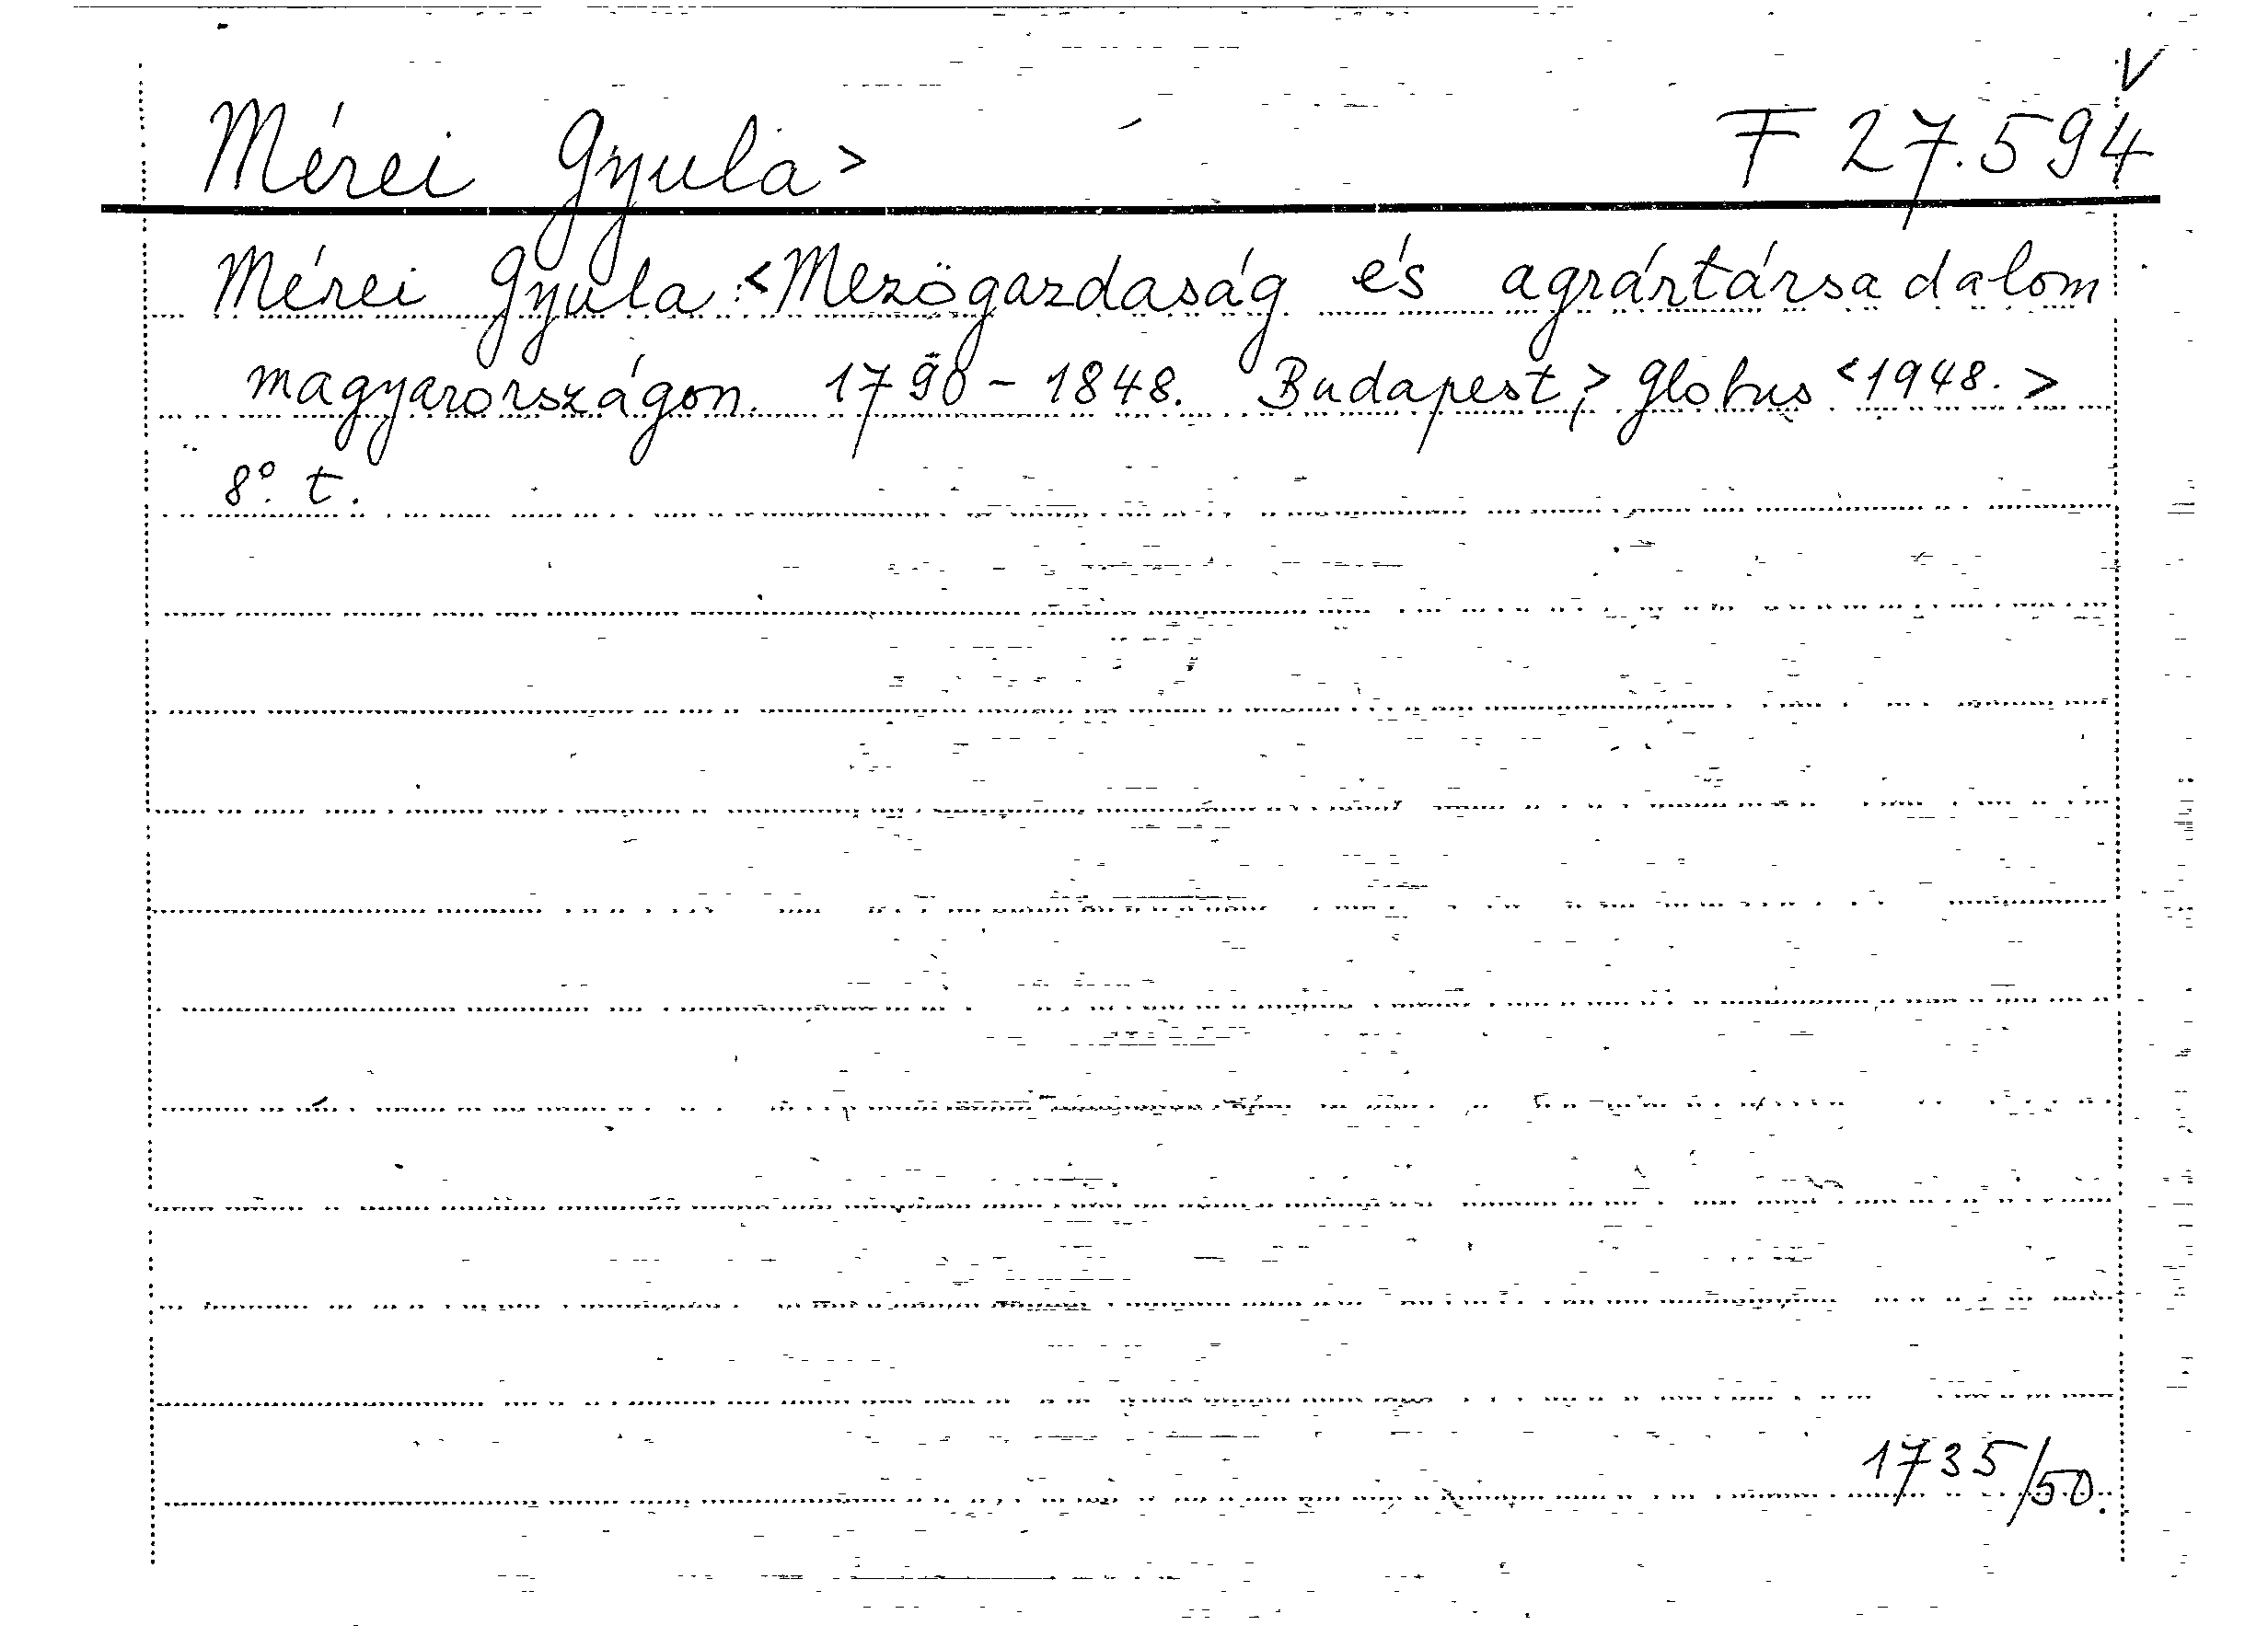 V
Mérei Gyula> F 27.594
Mérei Gyula: <Mezögazdaság és agrártársadalom
magyarországon. 1790-1848. Budapest,> Globus <1948.>
8° t.
1735/50.